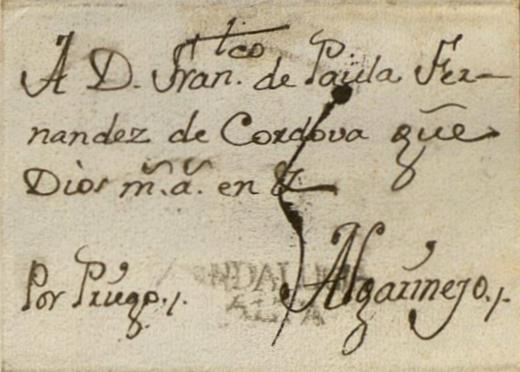 A D. Fran.tco de Paula Fer-
nandez de Cordova que
Dios m.s a.s en
Por Priego.
ANDALUCIA
ALTA
Algarinejo.